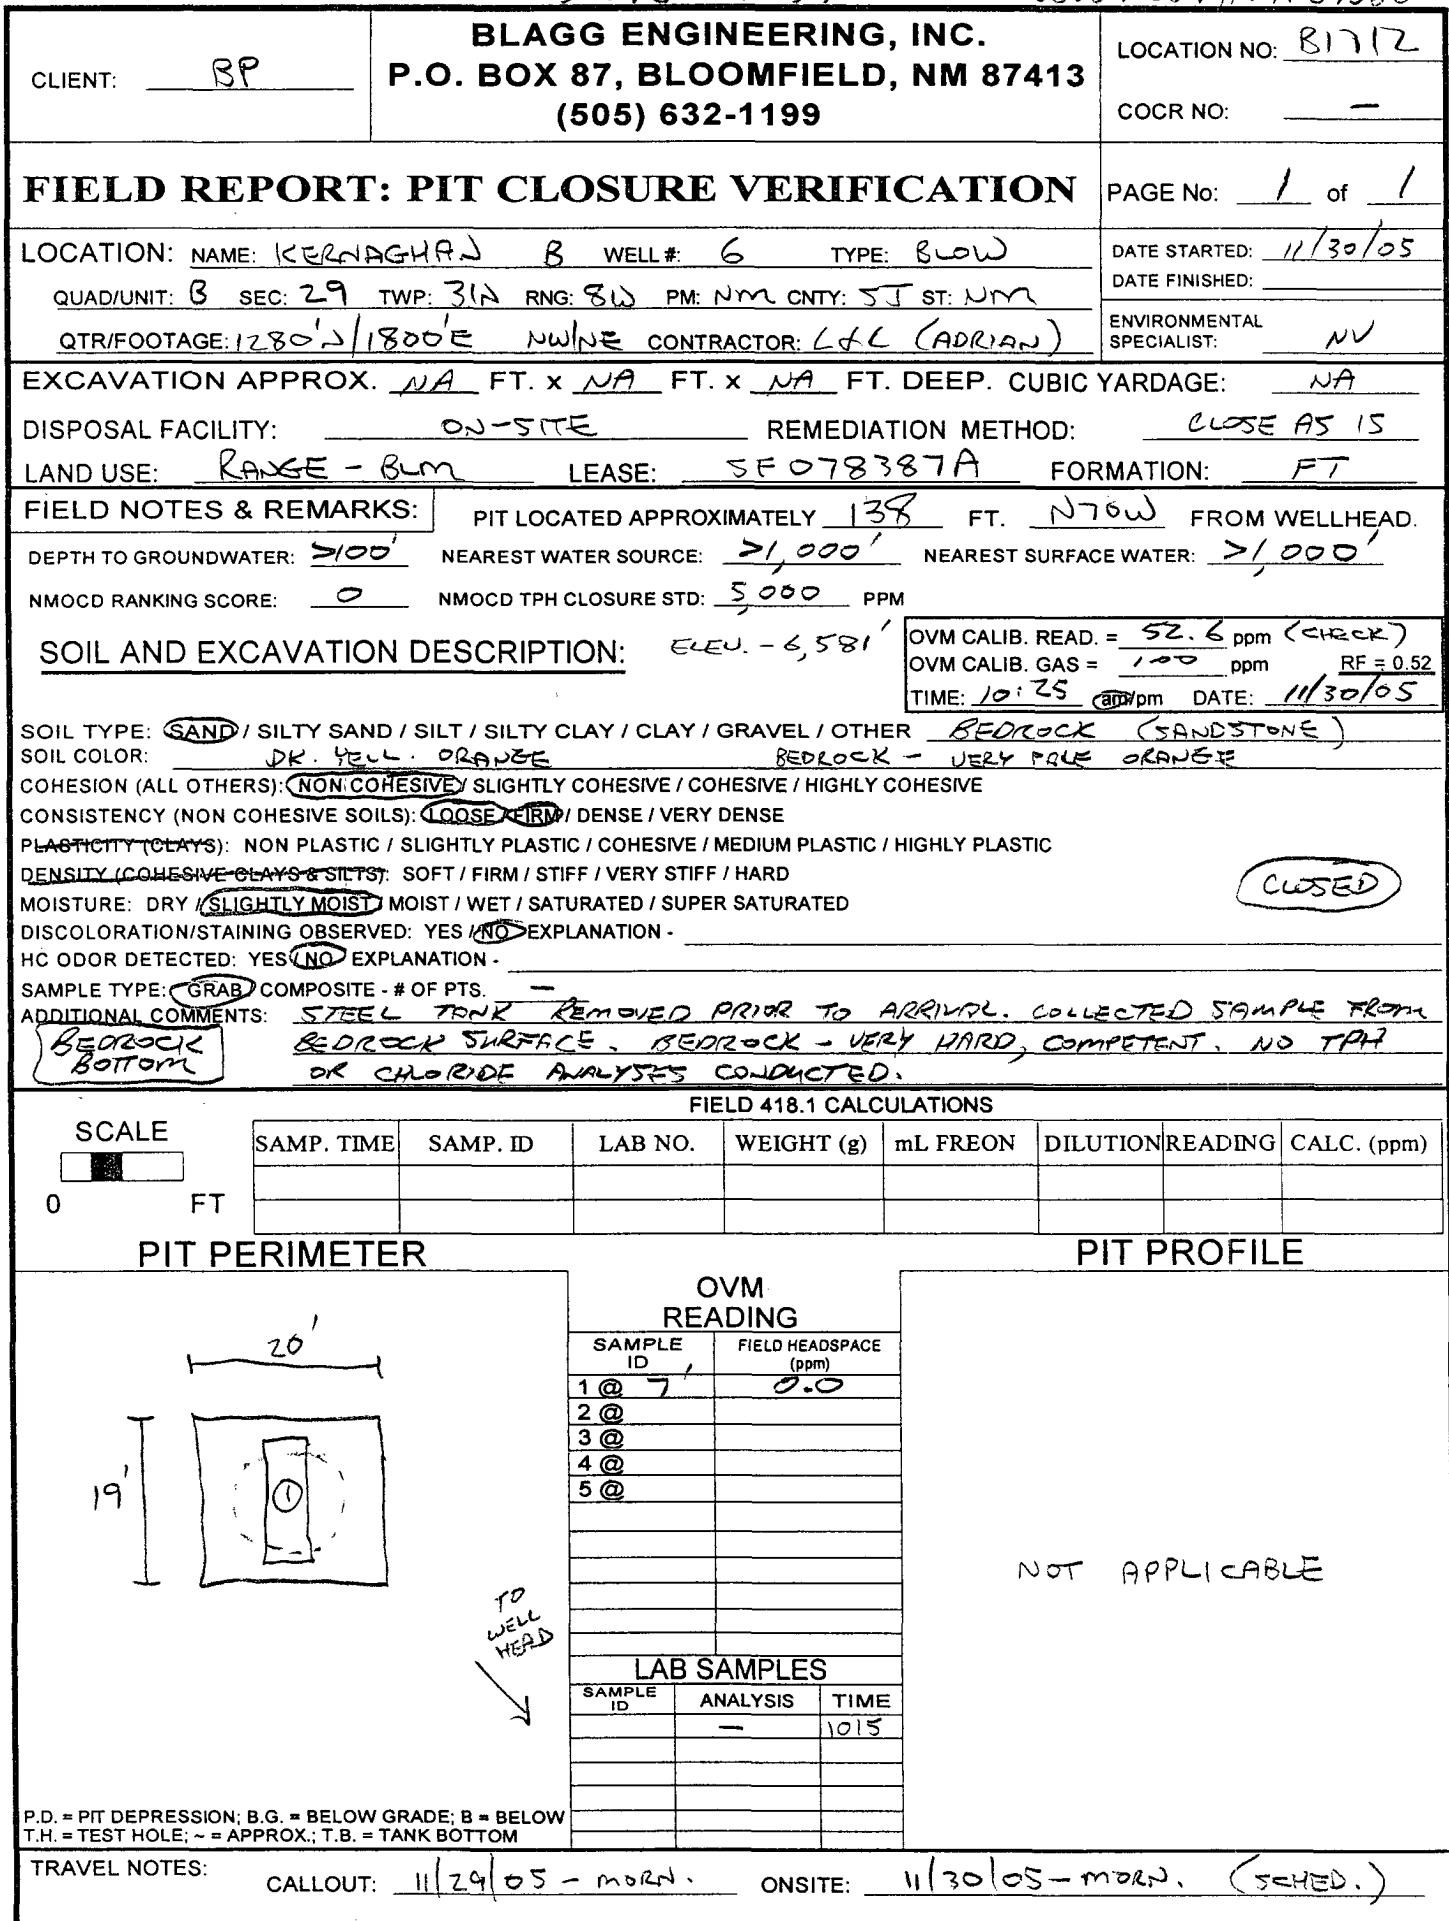 BLAGG ENGINEERING, INC.
P.O. BOX 87, BLOOMFIELD, NM 87413
(505) 632-1199
CLIENT: BP
LOCATION NO: B1712
COCR NO: —
FIELD REPORT: PIT CLOSURE VERIFICATION
PAGE No: 1 of 1
LOCATION: NAME: KERNAGHAN B WELL #: 6 TYPE: BLOW
QUAD/UNIT: B SEC: 29 TWP: 31N RNG: 8W PM: NM CNTY: SJ ST: NM
QTR/FOOTAGE: 1280'N/1800'E NW/NE CONTRACTOR: L&L (ADRIAN)
DATE STARTED: 11/30/05
DATE FINISHED:
ENVIRONMENTAL
SPECIALIST: NV
EXCAVATION APPROX. NA FT. x NA FT. x NA FT. DEEP. CUBIC YARDAGE: NA
DISPOSAL FACILITY: ON-SITE REMEDIATION METHOD: CLOSE AS IS
LAND USE: RANGE - BLM LEASE: SF078387A FORMATION: FT
FIELD NOTES & REMARKS: PIT LOCATED APPROXIMATELY 138 FT. N70W FROM WELLHEAD.
DEPTH TO GROUNDWATER: >100' NEAREST WATER SOURCE: >1,000' NEAREST SURFACE WATER: >1,000'
NMOCD RANKING SCORE: 0 NMOCD TPH CLOSURE STD: 5,000 PPM
SOIL AND EXCAVATION DESCRIPTION: ELEV. - 6,581'
OVM CALIB. READ. = 52.6 ppm (CHECK)
OVM CALIB. GAS = 100 ppm RF = 0.52
TIME: 10:25 am/pm DATE: 11/30/05
SOIL TYPE: SAND / SILTY SAND / SILT / SILTY CLAY / CLAY / GRAVEL / OTHER BEDROCK (SANDSTONE)
SOIL COLOR: DK. YELL. ORANGE BEDROCK - VERY PALE ORANGE
COHESION (ALL OTHERS): NON COHESIVE / SLIGHTLY COHESIVE / COHESIVE / HIGHLY COHESIVE
CONSISTENCY (NON COHESIVE SOILS): LOOSE / FIRM / DENSE / VERY DENSE
PLASTICITY (CLAYS): NON PLASTIC / SLIGHTLY PLASTIC / COHESIVE / MEDIUM PLASTIC / HIGHLY PLASTIC
DENSITY (COHESIVE CLAYS & SILTS): SOFT / FIRM / STIFF / VERY STIFF / HARD
CLOSED
MOISTURE: DRY / SLIGHTLY MOIST / MOIST / WET / SATURATED / SUPER SATURATED
DISCOLORATION/STAINING OBSERVED: YES / NO EXPLANATION -
HC ODOR DETECTED: YES / NO EXPLANATION -
SAMPLE TYPE: GRAB / COMPOSITE - # OF PTS. —
ADDITIONAL COMMENTS: STEEL TANK REMOVED PRIOR TO ARRIVAL. COLLECTED SAMPLE FROM
BEDROCK SURFACE. BEDROCK - VERY HARD, COMPETENT. NO TPH
OR CHLORIDE ANALYSES CONDUCTED.
BEDROCK
BOTTOM
FIELD 418.1 CALCULATIONS
SCALE
0 FT
SAMP. TIME SAMP. ID LAB NO. WEIGHT (g) mL FREON DILUTION READING CALC. (ppm)
PIT PERIMETER
PIT PROFILE
20'
19'
1
TO
WELL
HEAD
OVM
READING
SAMPLE ID FIELD HEADSPACE (ppm)
1 @ 7' 0.0
2 @
3 @
4 @
5 @
NOT APPLICABLE
LAB SAMPLES
SAMPLE ID ANALYSIS TIME
— 1015
P.D. = PIT DEPRESSION; B.G. = BELOW GRADE; B = BELOW
T.H. = TEST HOLE; ~ = APPROX.; T.B. = TANK BOTTOM
TRAVEL NOTES: CALLOUT: 11/29/05 - MORN. ONSITE: 11/30/05 - MORN. (SCHED.)